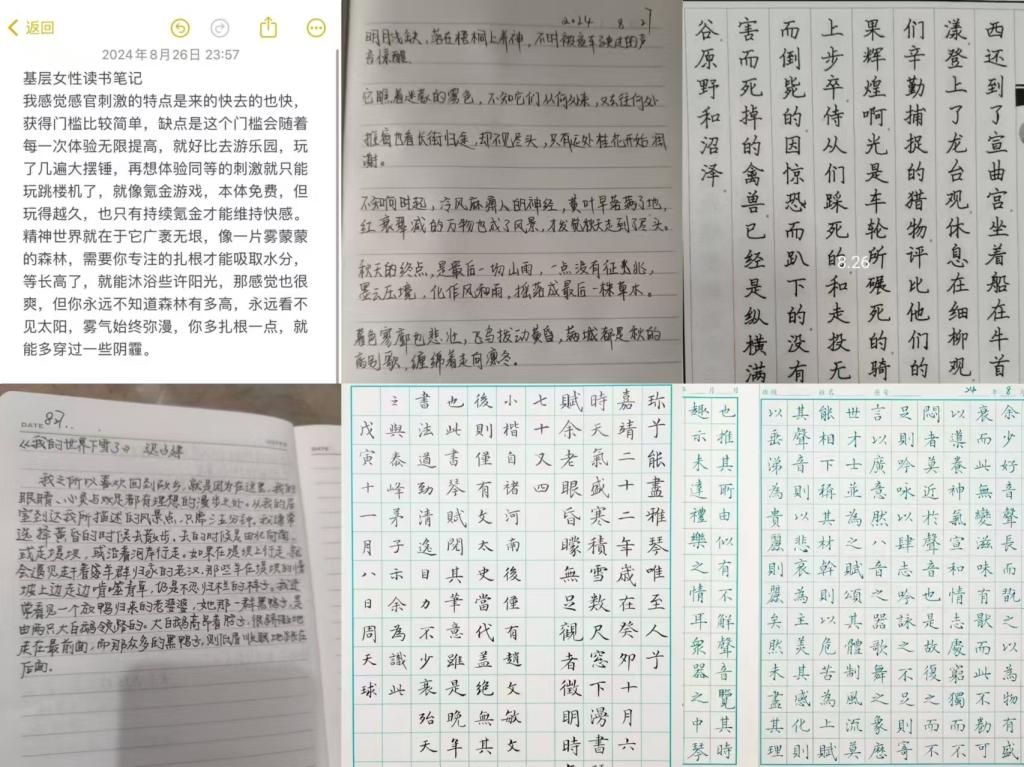 返回
2024年8月26日 23:57
基层女性读书笔记
我感觉感官刺激的特点是来的快去的也快，
获得门槛比较简单，缺点是这个门槛会随着
每一次体验无限提高，就好比去游乐园，玩
了几遍大摆锤，再想体验同等的刺激就只能
玩跳楼机了，就像氪金游戏，本体免费，但
玩得越久，也只有持续氪金才能维持快感。
精神世界就在于它广袤无垠，像一片雾蒙蒙
的森林，需要你专注的扎根才能吸取水分，
等长高了，就能沐浴些许阳光，那感觉也很
爽，但你永远不知道森林有多高，永远看不
见太阳，雾气始终弥漫，你多扎根一点，就
能多穿过一些阴霾。
2024. 8. 27
明月浅缺，落在梧桐上养神，不时被夜车驶过的声
音惊醒
它瞧着迷蒙的雾色，不知它们从何处来，又去往何处
推窗也看长街归途，却不见尽头，只有近处桂花开始凋
谢。
不知何时起，冷风麻痹人的神经，黄叶早落满了地，
红衰翠减的万物也成了风景，才发觉秋天走到了尽头。
秋天的终点，是最后一场山雨，一点没有征兆，
墨云压境，化作风和雨，摇落成最后一株草木。
暮色寥廓也悲壮，飞鸟拨动黄昏，满城都是秋的
离别歌，缠绵着走向凛冬。
西还到了宣曲宫坐着船在牛首
漾登上了龙台观休息在细柳观
们辛勤捕捉的猎物评比他们的
果辉煌啊光是车轮所碾死的骑
上步卒侍从们踩死的和走投无
而倒毙的因惊恐而趴下的没有
害而死掉的禽兽已经是纵横满
谷原野和沼泽
8.26
DATE 8.27..
《我的世界下雪了》 迟子建
我之所以喜欢回到故乡，就是因为在这里，我的
眼睛、心灵与双足都有理想的漫步之处。从我的居
室到达我所描述的风景点，只需三五分钟。我通常
选择黄昏的时候去散步。去的时候是由北向南，
或走堤坝，或沿着河岸行走。如果在堤坝上行走，就
会遇见赶着羊群归家的老汉，那些羊在堤坝的慢
坡上边走边啃噬青草，仍是不忍归栏的样子。我还
常看见一个放鸭归来的老婆婆，她那一群黑鸭子，是
由两只大白鹅领路的。大白鹅高昂着脖子，很骄傲地
走在最前面，而那众多的黑鸭子，则低眉顺眼地跟在
后面。
珎予能盡雅琴唯至人子
嘉靖二十二年歲在癸卯十月六
時天氣盛寒積雪數尺窓下漫書
賦余老眼昏矇無足觀者徵明時
七十又四
小楷自褚河南後僅有趙文敏
後則僅有太史當代蓋絕無其
也此書琴賦閱其筆意雖是晚年
書法道勁清逸目力不少衰殆天
與泰峰茅子示余為識此
戊寅十一月八日周天球
24 年 8
余少好音聲長而翫之以為物有盛
衰而此無變滋味有猒而此不勌可
以導養神氣宣和情志處窮獨而不
悶者莫近於音聲也是故復之而不
足則吟咏以肆志吟詠之不足則寄
言以廣意然八音之器歌舞之象歷
世才士並為之賦頌其體制風流莫
以垂涕為貴麗則麗矣然未盡其理
也推其所由似不解聲音覽其時
趣亦未達禮樂之情耳衆器之中琴